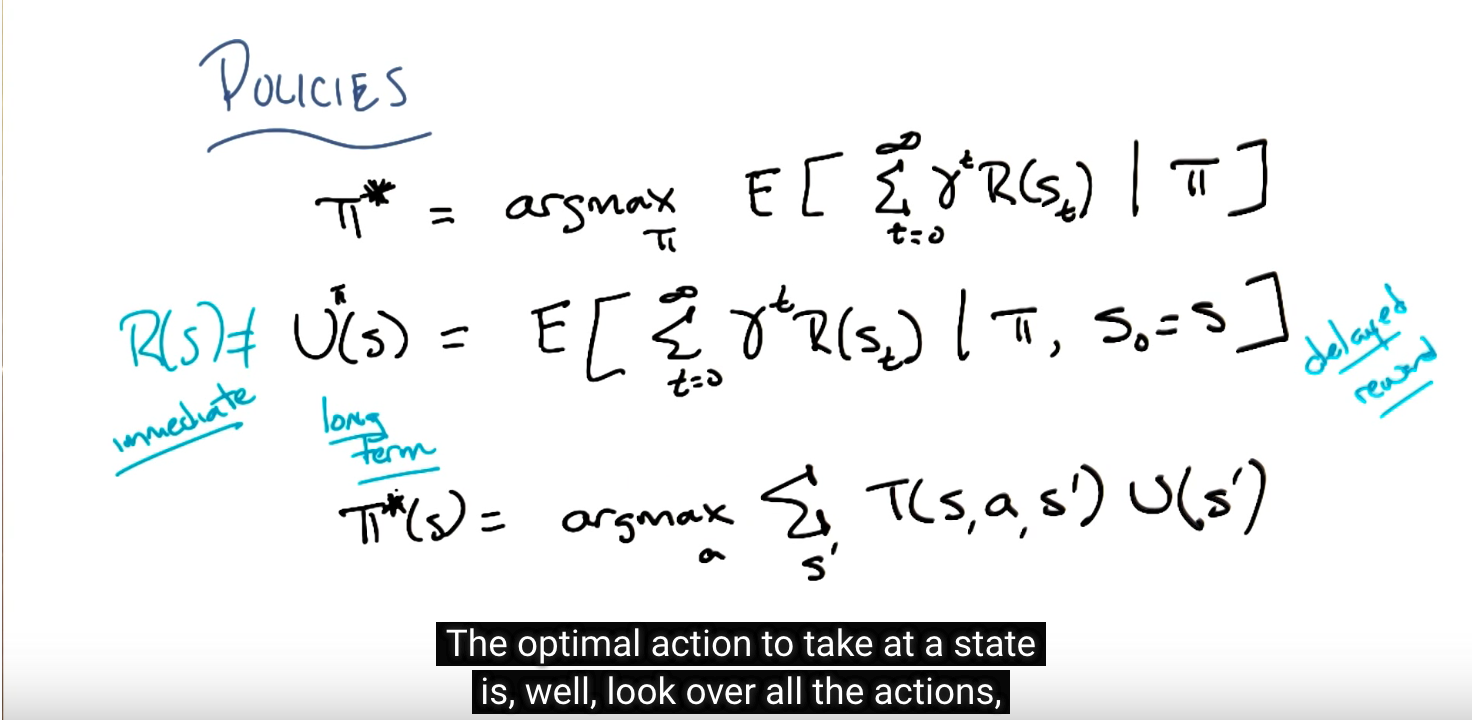 POLICIES
π* = argmax_π E[ Σ_{t=0}^∞ γ^t R(s_t) | π ]
R(s) ≠ U^π(s) = E[ Σ_{t=0}^∞ γ^t R(s_t) | π, s_0=s ]
delayed
reward
immediate
long
term
π*(s) = argmax_a Σ_{s'} T(s,a,s') U(s')
The optimal action to take at a state
is, well, look over all the actions,